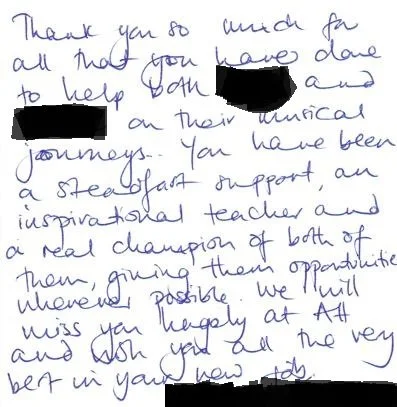 Thank you so much for
all that you have done
to help both and
on their musical
journeys. You have been
a steadfast support, an
inspirational teacher and
a real champion of both of
them, giving them opportunities
wherever possible. We will
miss you hugely at AH
and wish you all the very
best in your new job.